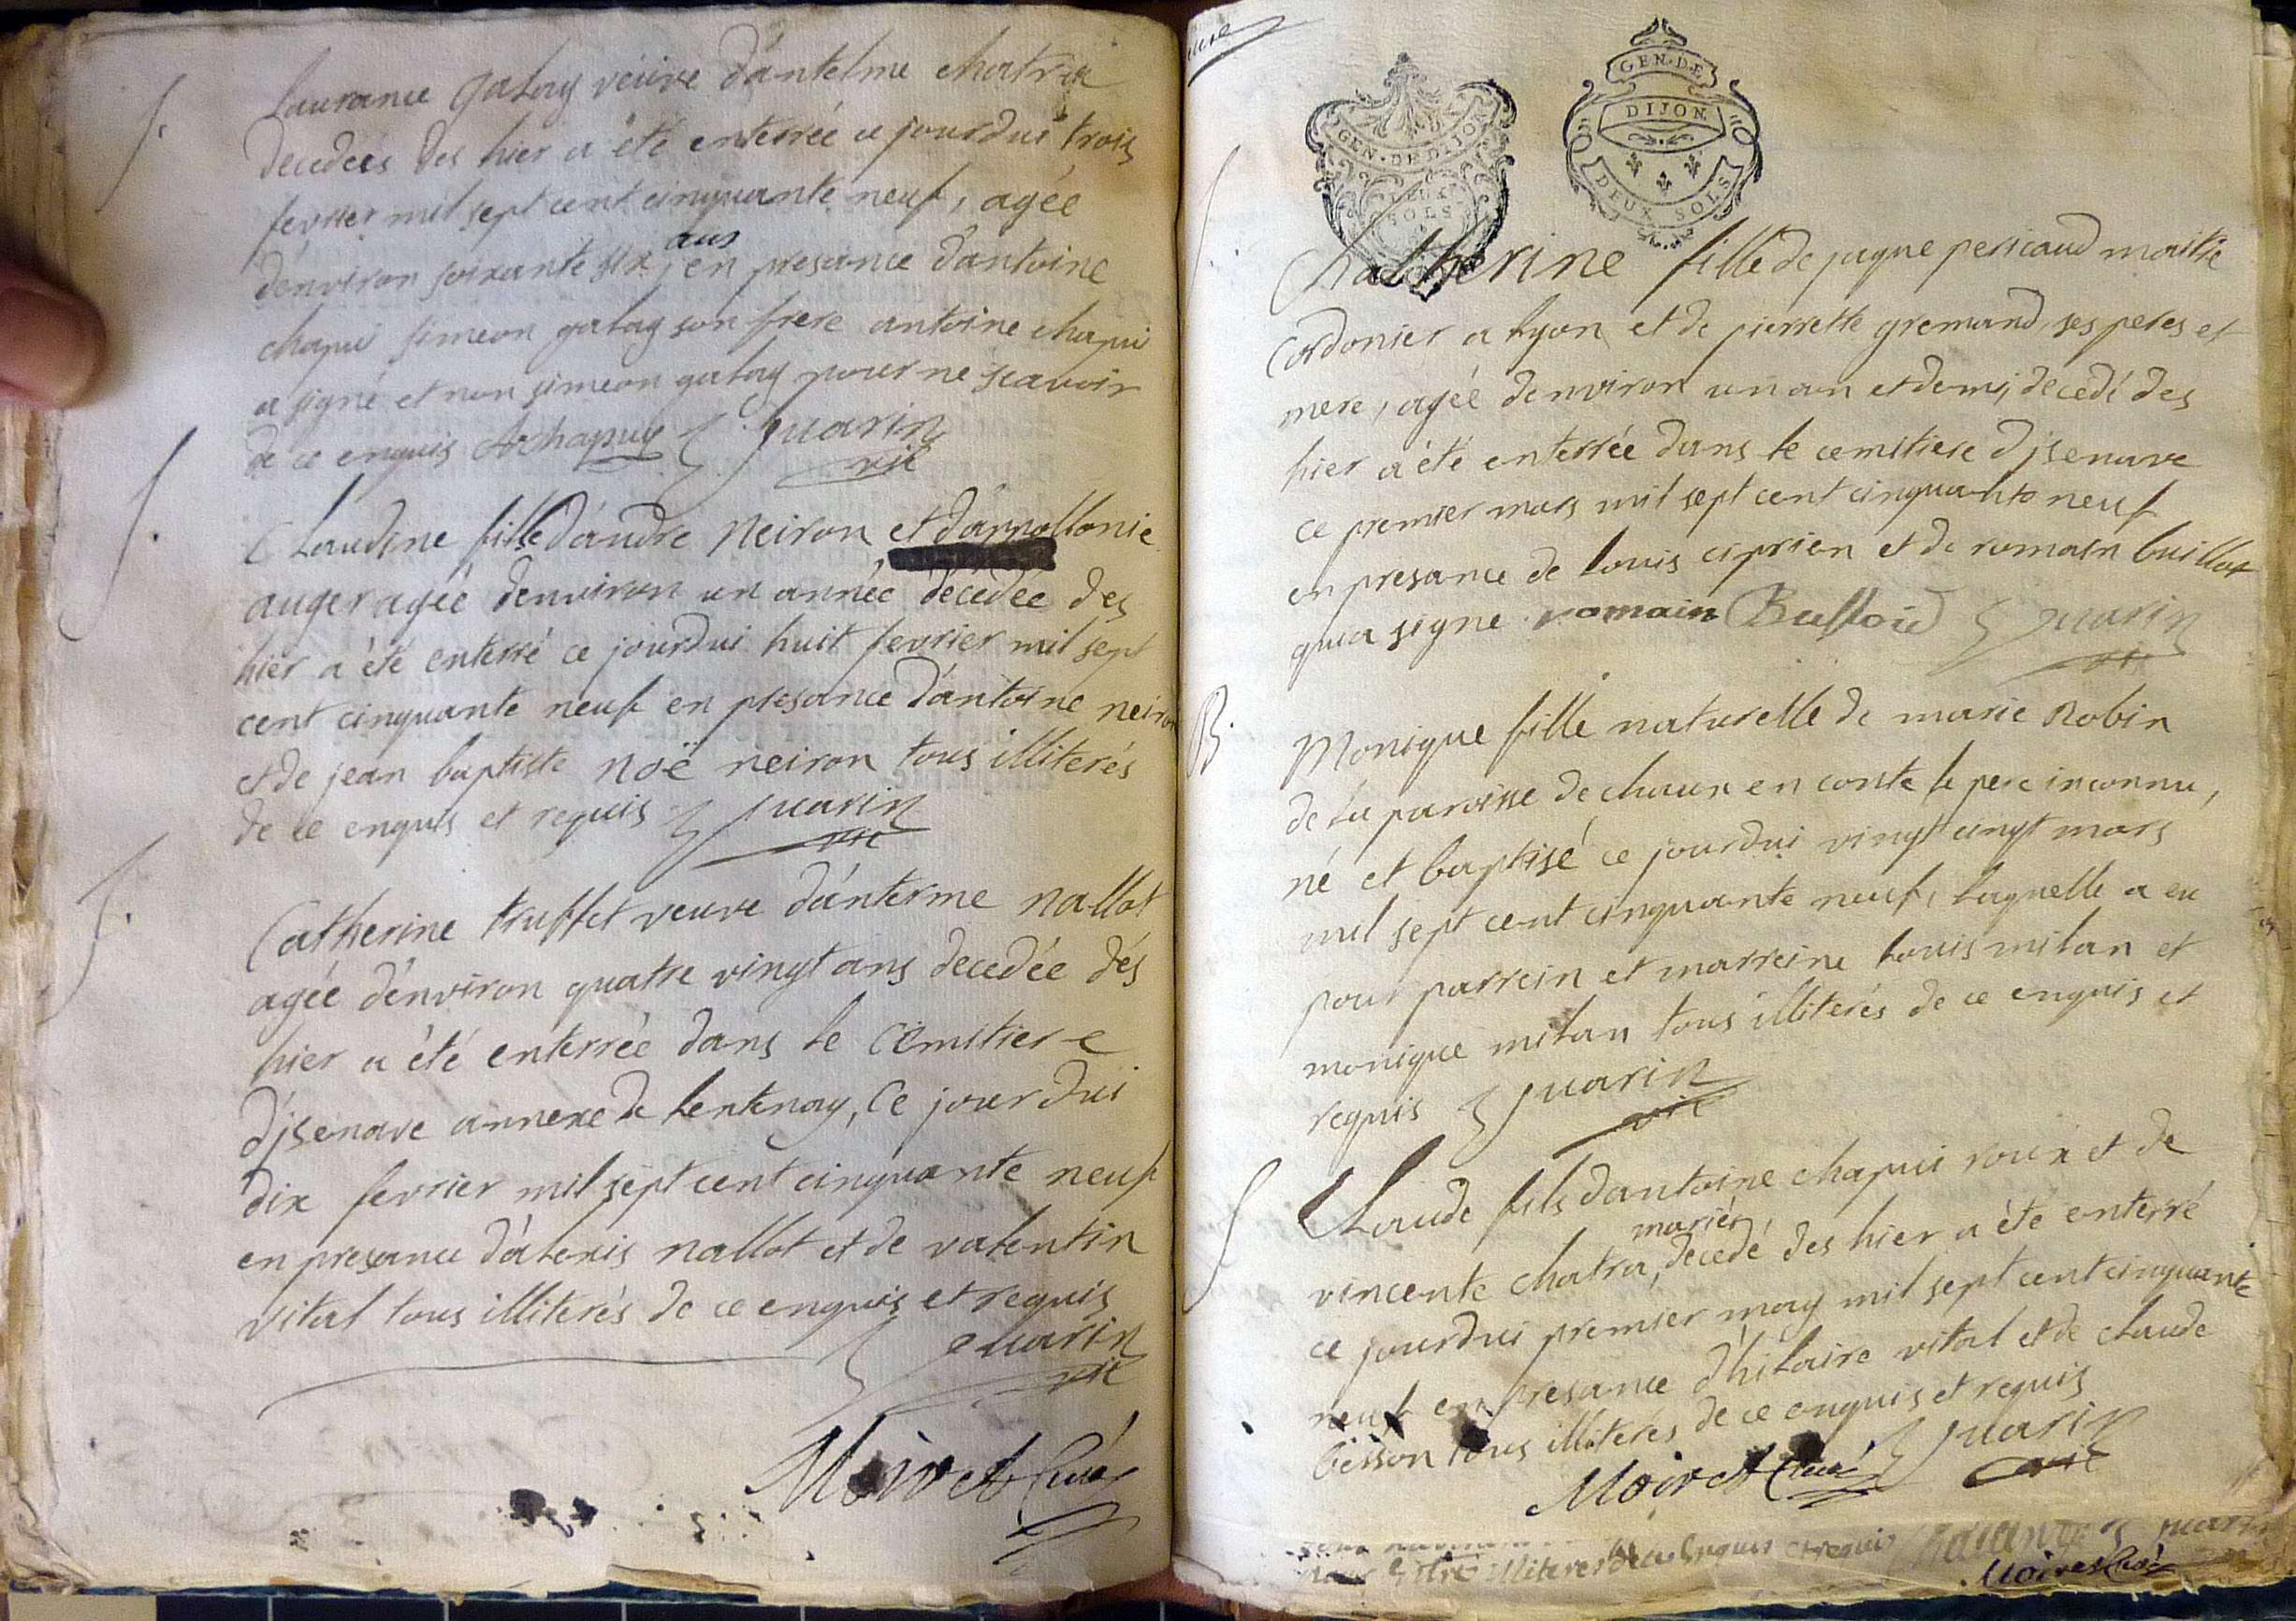 S.
Laurance galay véuve d'antelme chatra
decedeés des hier a été enterrée ce jourdui trois
fevrier mil sept cent cinquante neuf, agée
d'environ soixante six ans en presance d'antoine
chapui simeon galay son frere antoine chapui
a signé et non simeon galay pour ne scavoir
de ce enquis A chapuy Guarin
vic
S.
Claudine fille d'andre Neiron et d'appollonie
auger agée d'environ un année décedée des
hier a été enterré ce jourdui huit fevrier mil sept
cent cinquante neuf en presance d'antoine neiron
et de jean baptiste noë neiron tous illiterés
de ce enquis et requis Guarin
vic
S.
Catherine truffet veuve d'anterme nallot
agée d'environ quatre vingt ans decedée dés
hier a été enterrée dans le cemitiere
d'jsenave annexe de Lentenay, Ce jourdui
dix fevrier mil sept cent cinquante neuf
en presance d'alexis nallot et de valentin
vital tous illiterés de ce enquis et requis
Guarin
vic
Moiret Curé
GEN. DE DIJON
DEUX
SOLS
GEN. DE
DIJON
DEUX SOLS
S.
Chatherine fille de jaque pericaud maitre
Cordonier a Lyon et de pierrette gremand ses peres et
mere, agée d'environ un an et demi, decedé des
hier a été enterrée dans le cemitiere d'jsenave
ce premier mars mil sept cent cinquante neuf
en presance de Louis ciprien et de romain buillot
qui a signe romain Bulloid Guarin
vic
B.
Monique fille naturelle de marie Robin
de la paroisse de chaux en conte le pere inconnu,
né et baptisé ce jourdui vingt cinqt mars
mil sept cent cinquante neuf, laquelle a eu
pour parrein et marreine Louis milan et
monique milan tous illiterés de ce enquis et
requis Guarin
vic
S
Claude fils d'antoine chapui roux et de
vincente chatra, mariés decedé des hier a été enterré
ce jourdui premier may mil sept cent cinquante
neuf en presance d'hilaire vital et de claude
besson tous illiterés de ce enquis et requis
Moiret Curé Guarin
vic
illiteres de ce enquis et requis
Moiret Curé